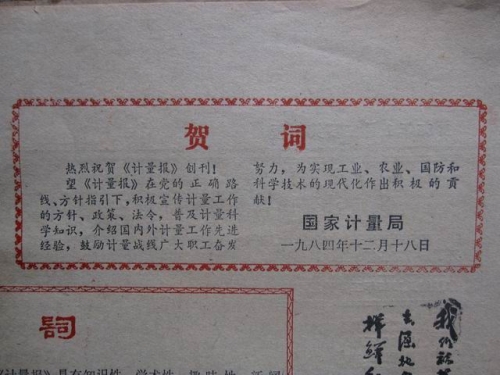 贺词
热烈祝贺《计量报》创刊！
望《计量报》在党的正确路
线、方针指引下，积极宣传计量工作
的方针、政策、法令，普及计量科
学知识，介绍国内外计量工作先进
经验，鼓励计量战线广大职工奋发
努力，为实现工业、农业、国防和
科学技术的现代化作出积极的贡
献！
国家计量局
一九八四年十二月十八日
词
《计量报》具有知识性、学术性、趣味性、新闻
我们